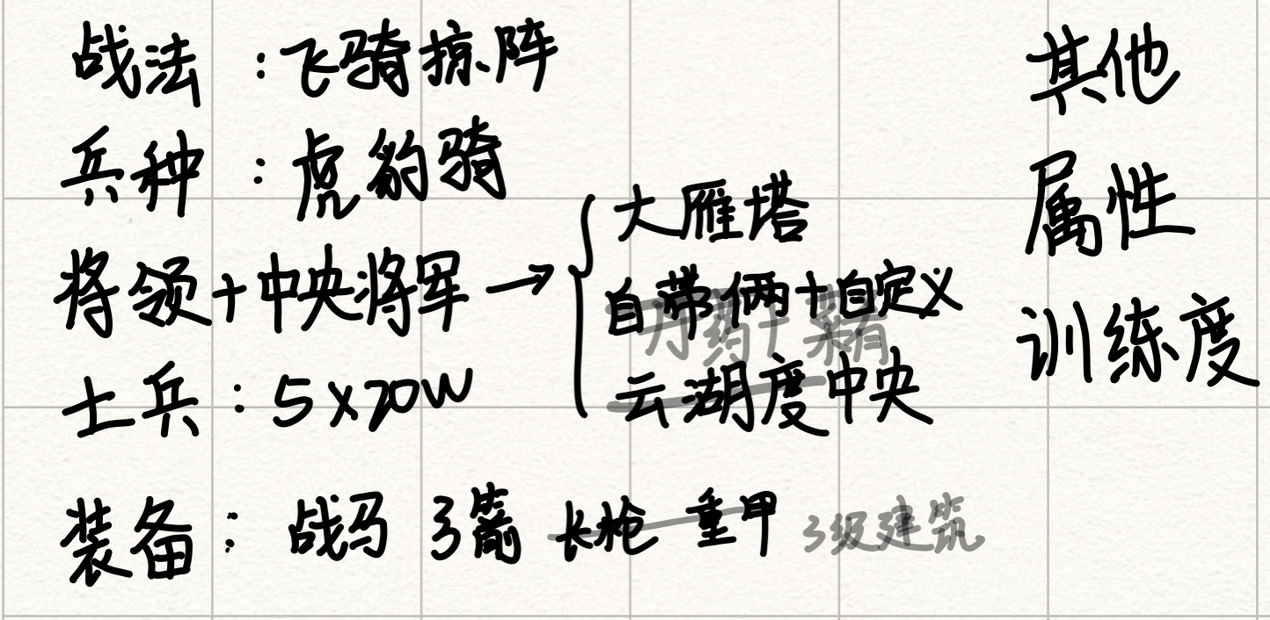 战法：飞骑掠阵
其他
兵种：虎豹骑
属性
将领+中央将军→
大雁塔
自带俩+自定义
云湖度中央
训练度
士兵：5×20W
装备：战马 弓箭 长枪 重甲 3级建筑